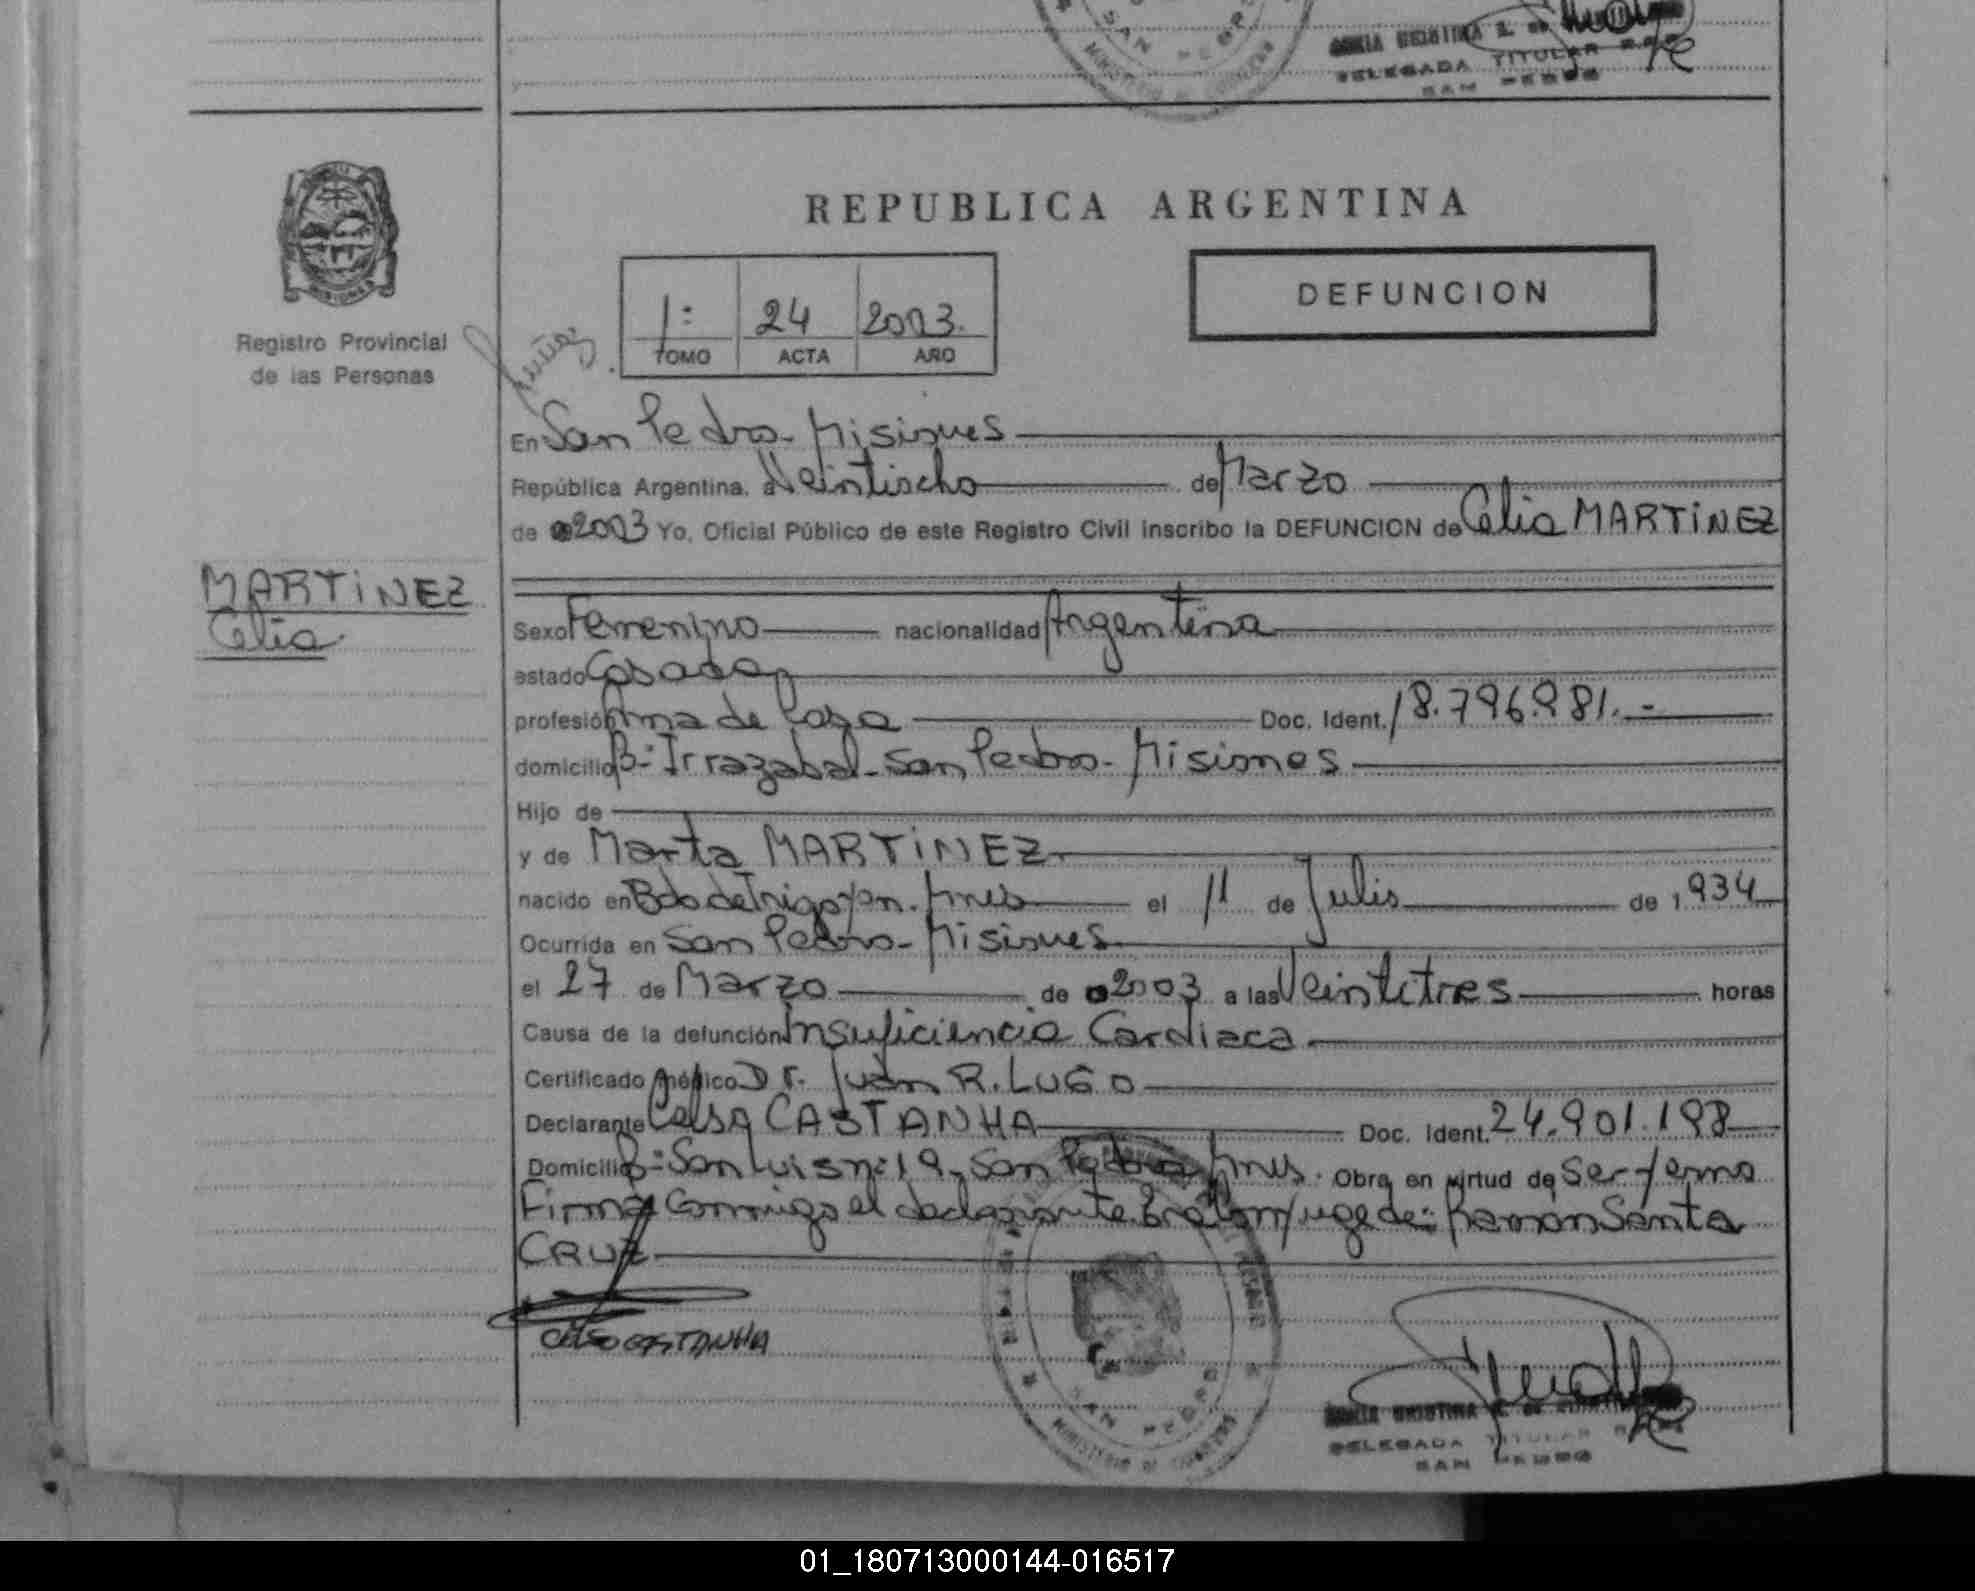 SAN PEDRO
DELEGADA TITULAR R.P.P.
SAN PEDRO
MISIONES
Registro Provincial
de las Personas
REPUBLICA ARGENTINA
1: 24 2003.
TOMO ACTA AÑO
DEFUNCION
En San Pedro - Misiones
República Argentina, a Veintiocho de Marzo
de 2003 Yo, Oficial Público de este Registro Civil inscribo la DEFUNCION de Celia MARTiNEZ
MARTiNEZ
Celia.
Sexo Femenino nacionalidad Argentina
estado Casada
profesión Ama de Casa Doc. Ident. 18.796.981.-
domicilio B: Irrazabal - San Pedro - Misiones
Hijo de
y de Marta MARTiNEZ.
nacido en Bdo de Irigoyen. Mnes el 11 de Julio de 1.934
Ocurrida en San Pedro - Misiones
el 27 de Marzo de 2003 a las Veintitres horas
Causa de la defunción Insuficiencia Cardiaca
Certificado médico Dr. Juan R. LUGO
Declarante Celso CASTANHA Doc. Ident. 24.901.198
Domicilio B: San Luis nº 19 - San Pedro Mnes. Obra en virtud de Ser Yerno
Firma Conmigo el declarante. Era Conyuge de: Ramon Santa
CRUZ
CELSO CASTANHA
SAN PEDRO
MINISTERIO DE GOBIERNO
DELEGADA TITULAR
SAN PEDRO
01_180713000144-016517